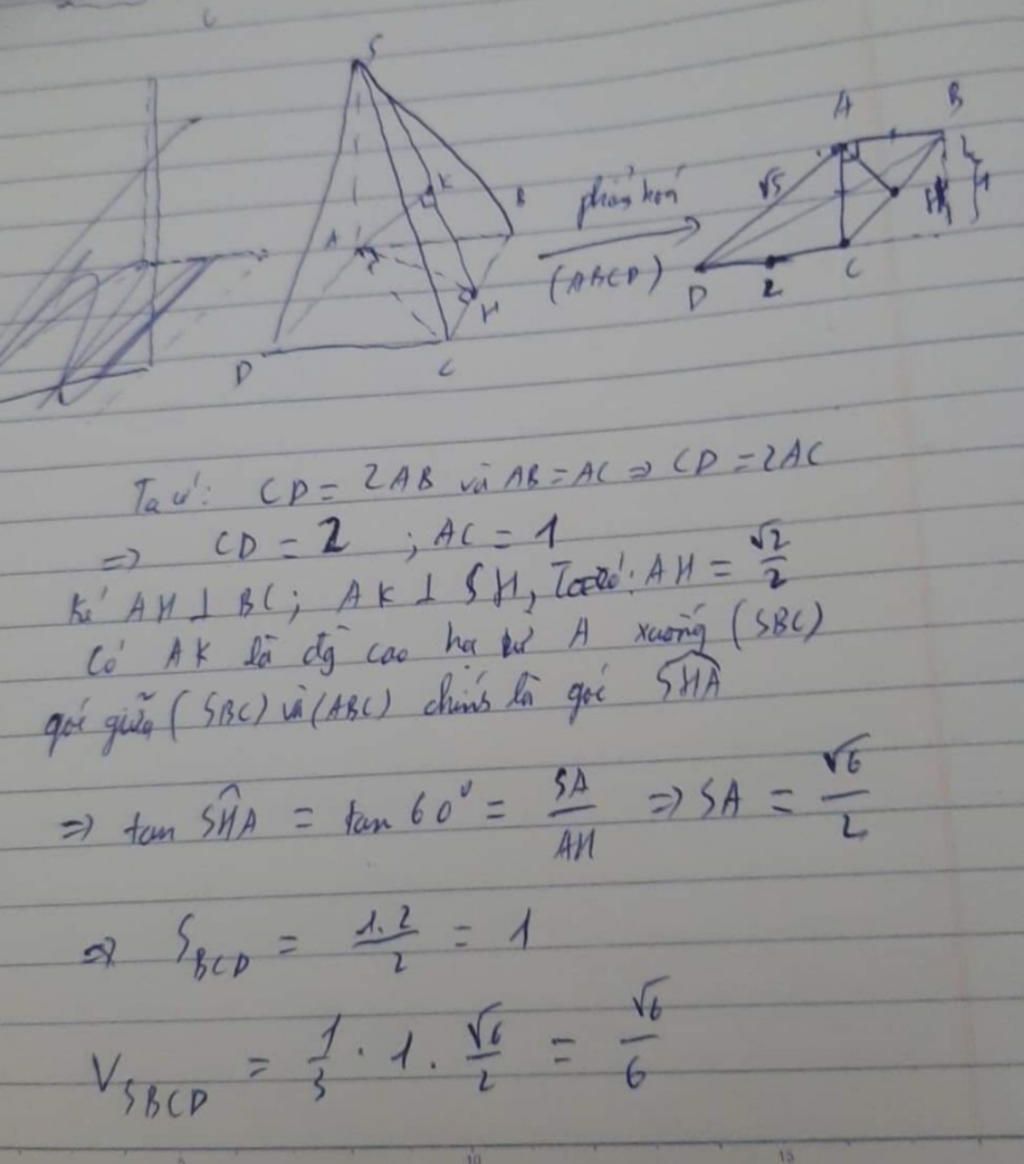 S
K
B
A
H
D
C
(ABCD)
A
B
√5
1
D
2
C
Ta có: CD = 2AB và AB = AC ⇒ CD = 2AC
⇒ CD = 2 ; AC = 1
Kẻ AH ⊥ BC; AK ⊥ SH, Ta có: AH = √2/2
Có AK là đg cao hạ từ A xuống (SBC)
góc giữa (SBC) và (ABC) chính là góc SHA
⇒ tan SHA = tan 60° = SA/AH ⇒ SA = √6/2
⇒ S_BCD = 1.2/2 = 1
V_SBCD = 1/3 . 1 . √6/2 = √6/6
10
15